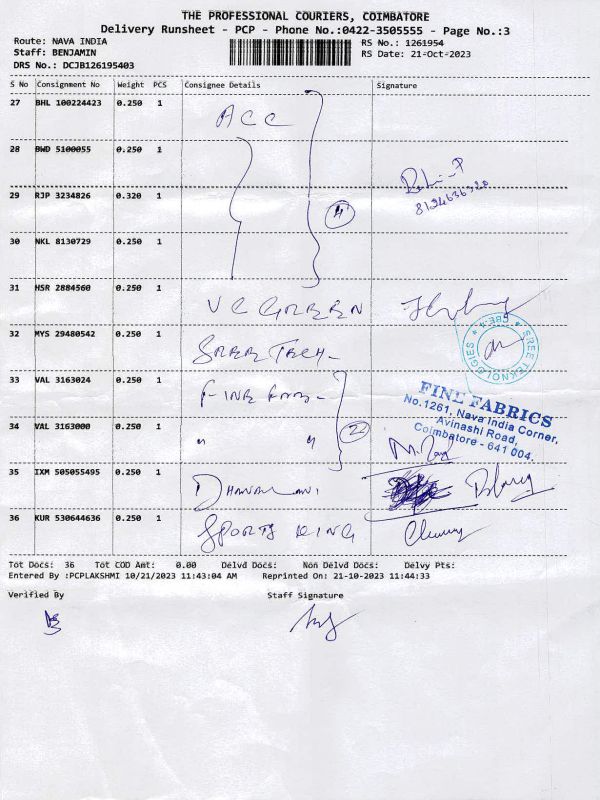 THE PROFESSIONAL COURIERS, COIMBATORE
Delivery Runsheet - PCP - Phone No.:0422-3505555 - Page No.:3
Route: NAVA INDIA
RS No.: 1261954
Staff: BENJAMIN
RS Date: 21-Oct-2023
DRS No.: DCJB126195403
S No Consignment No Weight PCS Consignee Details Signature
27 BHL 100224423 0.250 1 ACC
28 BWD 5100055 0.250 1
29 RJP 3234826 0.320 1 4
30 NKL 8130729 0.250 1
31 HSR 2884560 0.250 1 VC GREEN
32 MYS 29480542 0.250 1 SREE TECH-
SREE TEKNOLOGIES
CBE-4
33 VAL 3163024 0.250 1 FINE FAB-
FINE FABRICS
No.1261, Nava India Corner,
Avinashi Road,
Coimbatore - 641 004.
34 VAL 3163000 0.250 1 " " 2
35 IXM 505055495 0.250 1
36 KUR 530644636 0.250 1 SPORTS KING
Tot Docs: 36 Tot COD Amt: 0.00 Delvd Docs: Non Delvd Docs: Delvy Pts:
Entered By :PCPLAKSHMI 10/21/2023 11:43:04 AM Reprinted On: 21-10-2023 11:44:33
Verified By Staff Signature